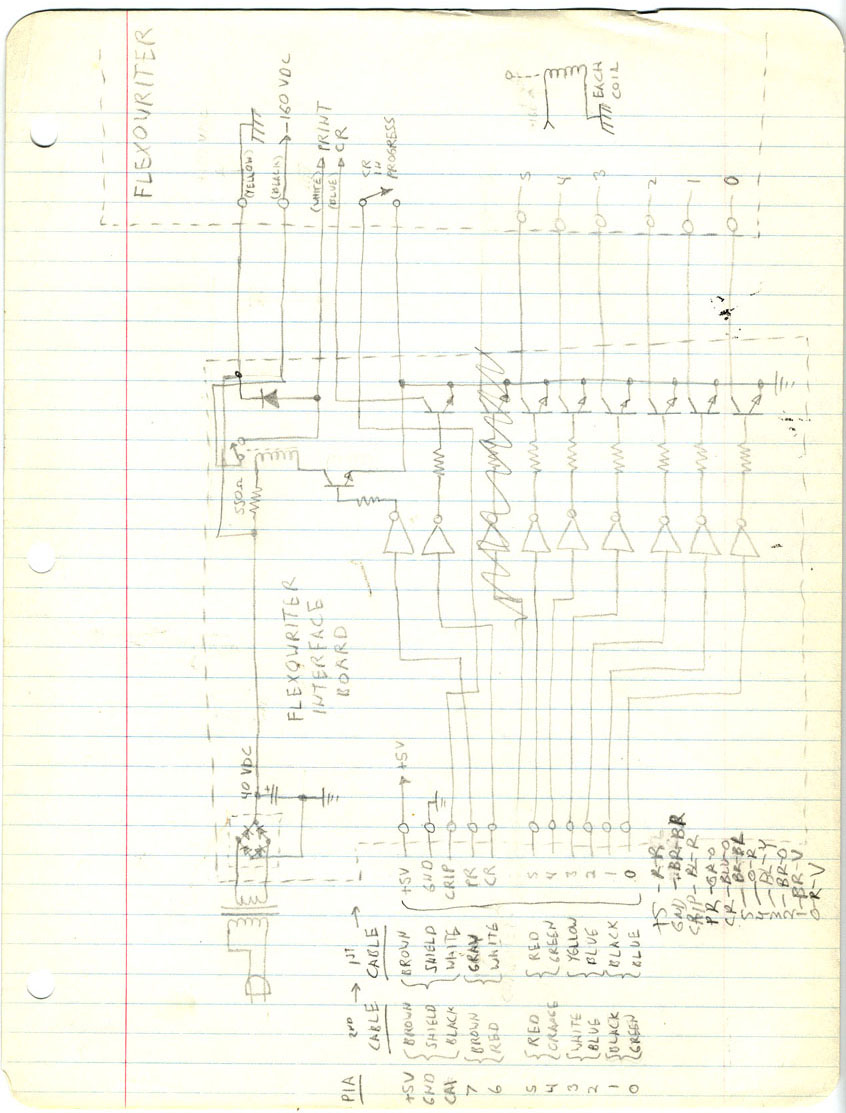 FLEXOWRITER
(YELLOW)
(BLACK) -160 VDC
(WHITE) PRINT
(BLUE) CR
CR
IN
PROGRESS
EACH
COIL
5
4
3
2
1
0
550Ω
FLEXOWRITER
INTERFACE
BOARD
40 VDC
+
+5V
+5V
GND
CRIP
PR
CR
5
4
3
2
1
0
PIA
2ND
CABLE
1ST
CABLE
+5V BROWN BROWN
GND SHIELD SHIELD
CA1 BLACK WHITE
7 BROWN GRAY
6 RED WHITE
5 RED RED
4 ORANGE GREEN
3 WHITE YELLOW
2 BLUE BLUE
1 BLACK BLACK
0 GREEN BLUE
+5 - R-R
GND - BR-BR
CRIP - BL-R
PR - GR-O
CR - BLU-O
5 - BR-BL
4 - O-R
3 - BL-Y
2 - BR-O
1 - BR-V
0 - R-V